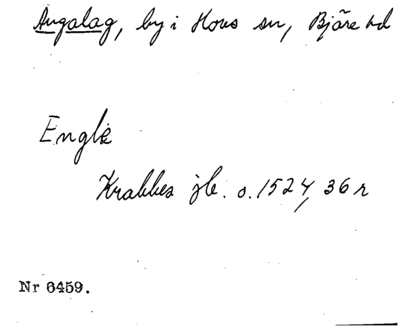 Angalag, by i Hovs sn, Bjäre hd
Englè
Krabbes jb. o. 1524, 36 r
Nr 6459.